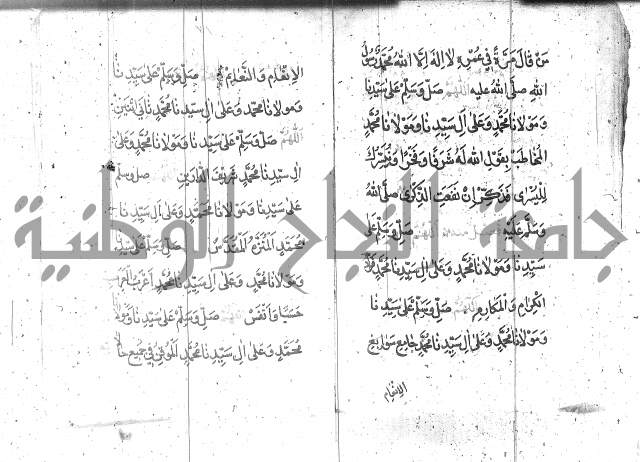 مَنْ قَالَ مَرَّةً فِي عُمْرِهِ لَا إِلَهَ إِلَّا اللهُ مُحَمَّدٌ رَسُولُ
اللهِ صَلَّى اللهُ عَلَيْهِ اللهم صَلِّ وَسَلِّمْ عَلَى سَيِّدِنَا
وَمَوْلَانَا مُحَمَّدٍ وَعَلَى آلِ سَيِّدِنَا وَمَوْلَانَا مُحَمَّدٍ
المُخَاطَبِ بِقَوْلِ اللهِ لَهُ شَرَفًا وَفَخْرًا وَنُيَسِّرُكَ
لِلْيُسْرَى فَذَكِّرْ إِنْ نَفَعَتِ الذِّكْرَى صَلَّى اللهُ
وَسَلَّمَ عَلَيْهِ اللهم صَلِّ وَسَلِّمْ عَلَى
سَيِّدِنَا وَمَوْلَانَا مُحَمَّدٍ وَعَلَى آلِ سَيِّدِنَا مُحَمَّدٍ
الكِرَامِ وَالمَكَارِمِ اللهم صَلِّ وَسَلِّمْ عَلَى سَيِّدِنَا
وَمَوْلَانَا مُحَمَّدٍ وَعَلَى آلِ سَيِّدِنَا مُحَمَّدٍ سَوَابِغِ
الإنعام
الإِنْعَامِ وَالتَّعَالِيمِ اللهم صَلِّ وَسَلِّمْ عَلَى سَيِّدِنَا
وَمَوْلَانَا مُحَمَّدٍ وَعَلَى آلِ سَيِّدِنَا مُحَمَّدٍ
اللهم صَلِّ وَسَلِّمْ عَلَى سَيِّدِنَا وَمَوْلَانَا مُحَمَّدٍ وَعَلَى
آلِ سَيِّدِنَا مُحَمَّدٍ شَرِيفِ صَلِّ وَسَلِّمْ
عَلَى سَيِّدِنَا وَمَوْلَانَا مُحَمَّدٍ وَعَلَى آلِ سَيِّدِنَا
مُحَمَّدٍ المُنَزَّهِ المُقَدَّسِ صَلِّ وَسَلِّمْ عَلَى سَيِّدِنَا
وَمَوْلَانَا مُحَمَّدٍ وَعَلَى آلِ سَيِّدِنَا مُحَمَّدٍ
حَسَبًا وَأَنْفَسِ صَلِّ وَسَلِّمْ عَلَى سَيِّدِنَا وَمَوْلَانَا
مُحَمَّدٍ وَعَلَى آلِ سَيِّدِنَا مُحَمَّدٍ فِي جَمِيعِ
جامعة النجاح الوطنية